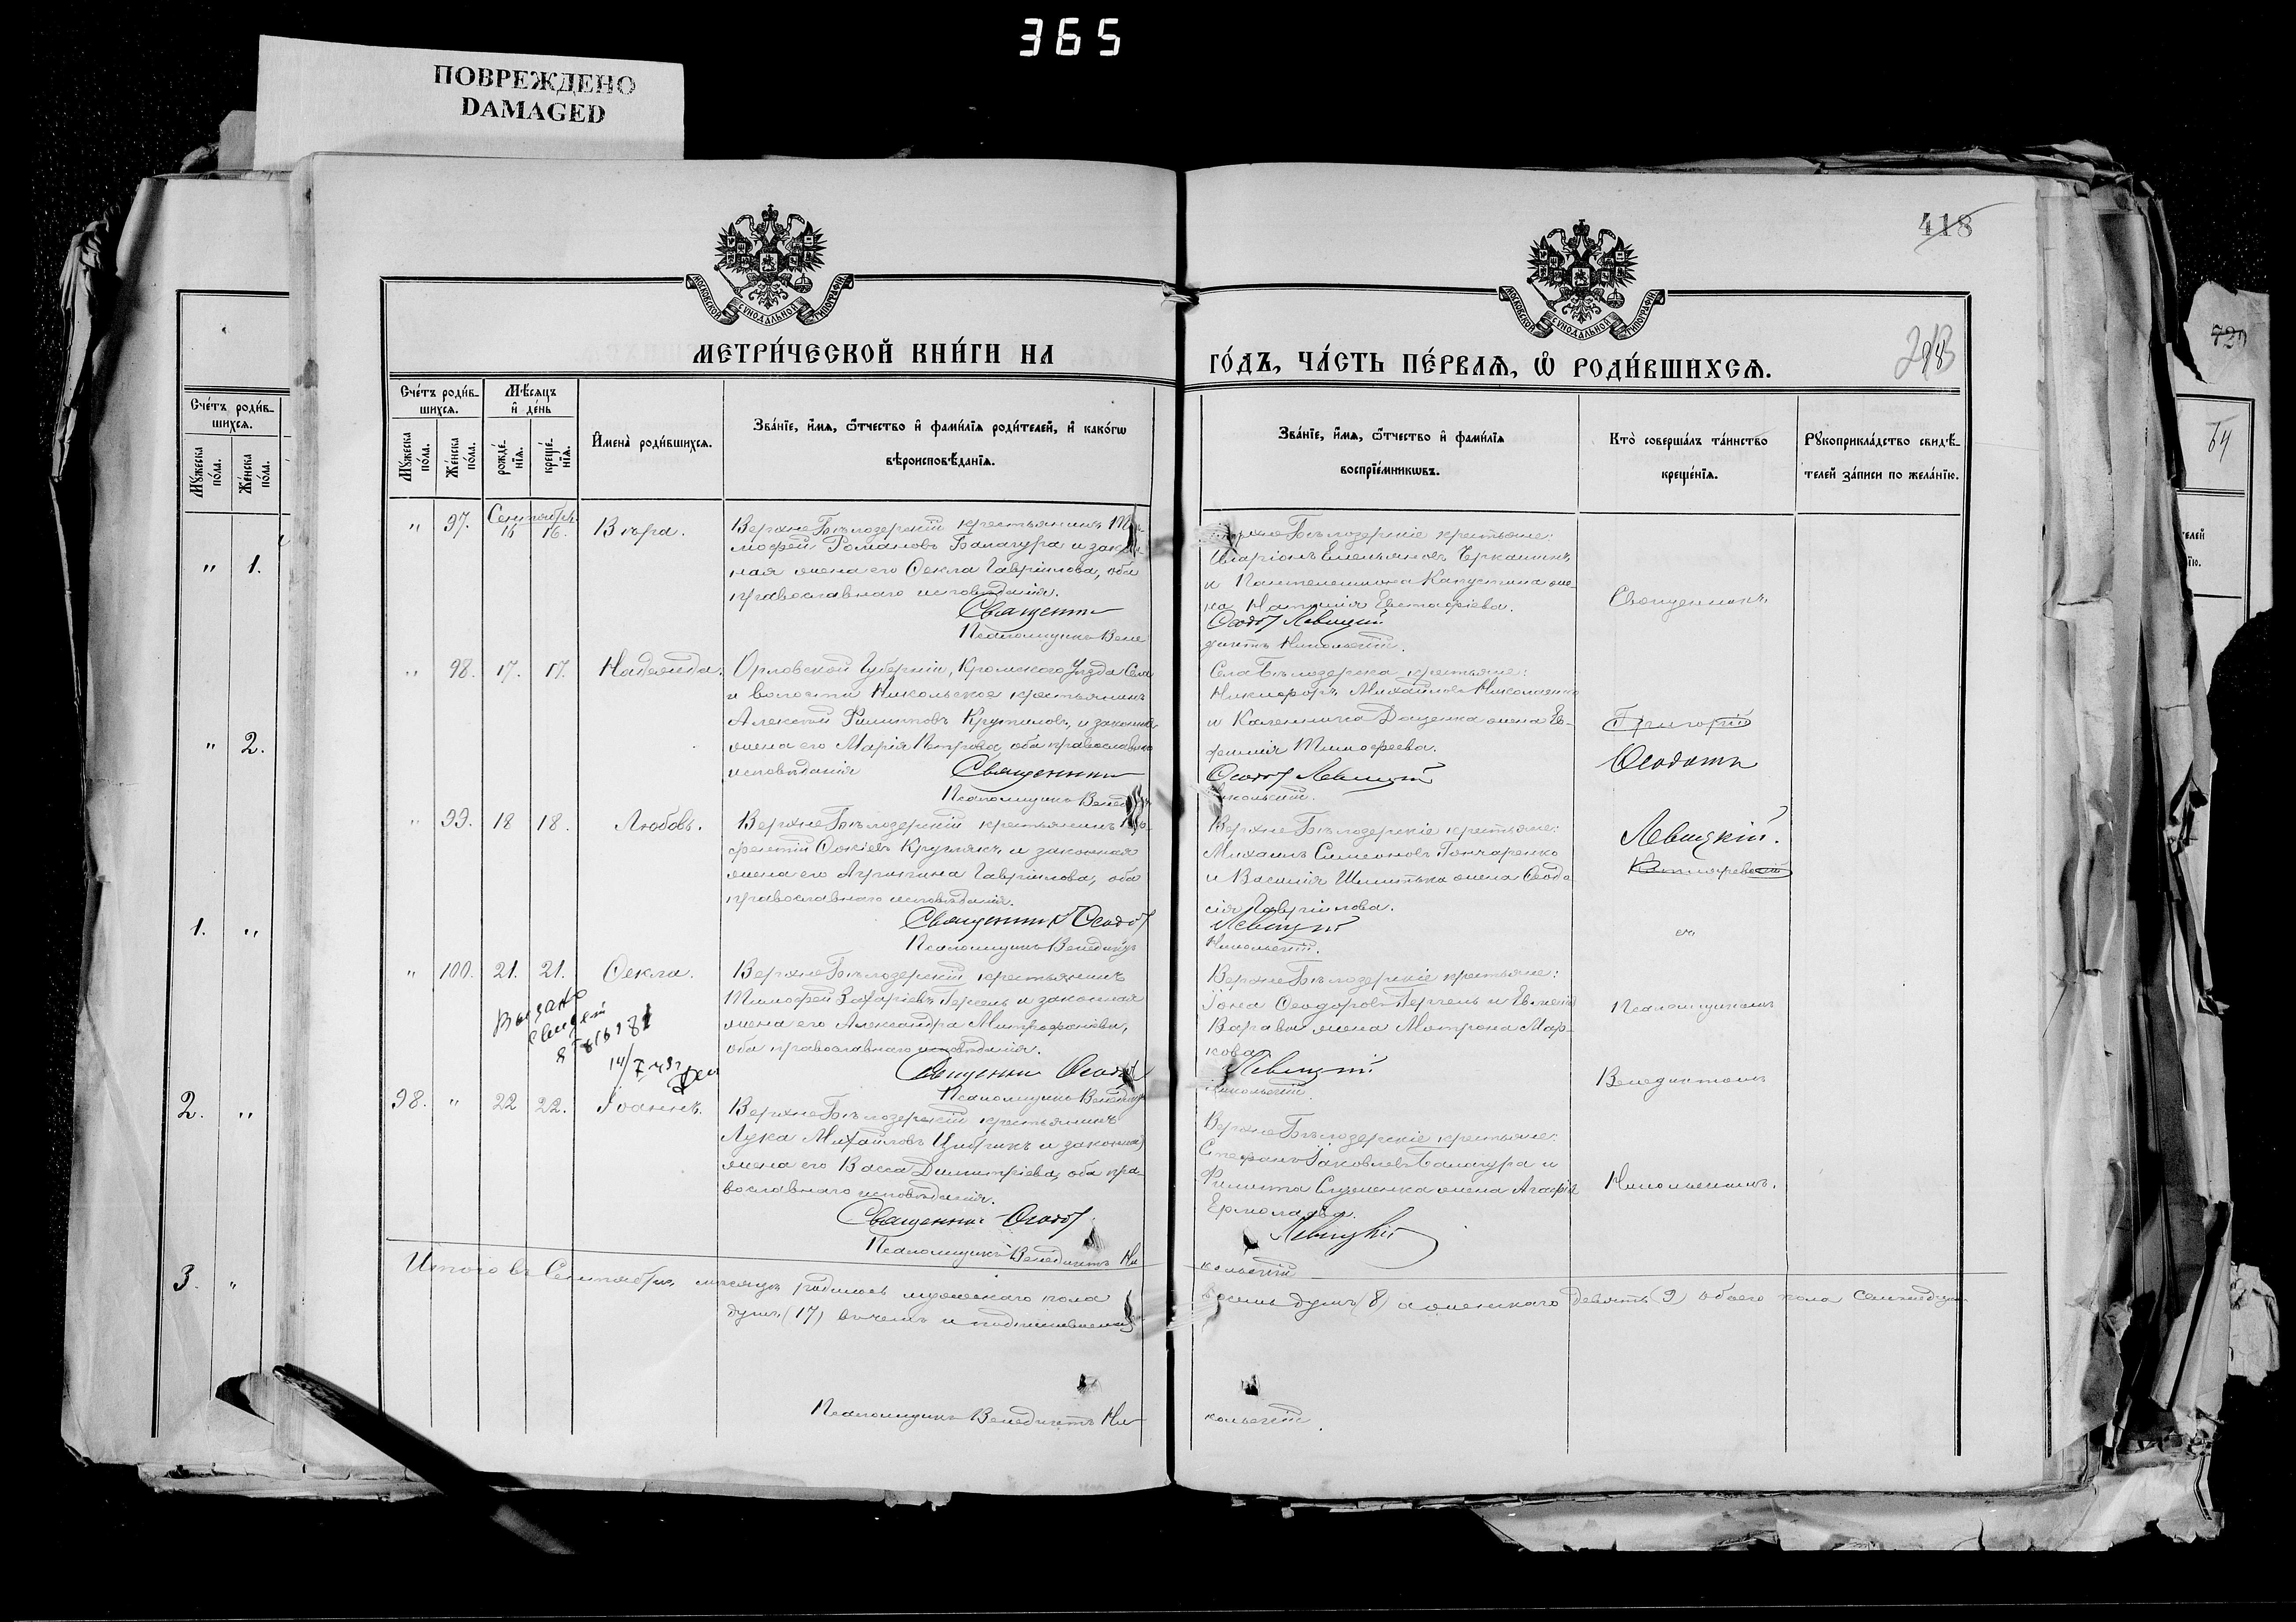 365
ПОВРЕЖДЕНО
DAMAGED
418
МОСКОВСКОЙ СѴНОДАЛЬНОЙ ТИПОГРАФІИ
МОСКОВСКОЙ СѴНОДАЛЬНОЙ ТИПОГРАФІИ
МЕТРИ́ЧЕСКОЙ КНИ́ГИ НА
ГО́ДЪ, ЧА́СТЬ ПЕ́РВАѦ, Ѡ РОДИ́ВШИХСѦ.
729
64
Сче́тъ роди́в-
шихсѧ.
Мꙋ́жеска по́ла.
Же́нска по́ла.
Сче́тъ роди́в-
шихсѧ.
Мꙋ́жеска по́ла.
Же́нска по́ла.
Мѣ́сѧцъ
и҆ де́нь
рожде́-
нїѧ.
креще́-
нїѧ.
И҆мена̀ роди́вшихсѧ.
Зва́нїе, и҆́мѧ, ѻ҆́тчество и҆ фами́лїѧ роди́телей, и҆ како́гѡ
вѣроисповѣ́данїѧ.
Зва́нїе, и҆́мѧ, ѻ҆́тчество и҆ фами́лїѧ
воспрїе́мникѡвъ.
Кто̀ соверша́лъ та́инство
креще́нїѧ.
Рꙋкоприкла́дство свидѣ́-
телей за́писи по жела́нїю.
" 1.
" 2.
1. "
2. "
3. "
Сентябрь
" 97. 15 16. Вѣра.
Верхне Бѣлозерскій крестьянинъ Ти-
мофей Романовъ Балагура и закон-
ная жена его Ѳекла Гавріилова, оба
православнаго исповѣданія.
Священни
Псаломщикъ Вене
Верхне Бѣлозерскіе крестьяне:
Иларіонъ Емельяновъ Черкашинъ
и Пантелеимона Капустина же-
на Наталія Евстафіева.
Ѳеодот Левицкій
диктъ Никольскій.
" 98. 17. 17. Надежда.
Орловской Губерніи, Кромскаго Уѣзда Села
и волости Никольское крестьянинъ
Алексѣй Филипповъ Кружиловъ, и законная
жена его Марія Петрова, оба православнаго
исповѣданія
Священник
Псаломщикъ Венедиктъ
Села Бѣлозерска крестьяне:
Никифоръ Михайловъ Николаенко
и Каленника Даценка жена Ев-
фимія Тимофеева.
Ѳеодот Левицкій
Никольскій.
" 99. 18 18. Любовь.
Верхне Бѣлозерскій крестьянинъ
жена его Агрипина Гавріилова, оба
православнаго исповѣданія.
Священник Ѳеодот
Псаломщикъ Венедиктъ
Верхне Бѣлозерскіе крестьяне:
Михаилъ Симеоновъ Гончаренко
сія Гавріилова.
Левицкій
Никольскій.
" 100. 21. 21. Ѳекла.
Верхне Бѣлозерскій крестьянинъ
Тимофей Захаріевъ Гергель и законная
жена его Александра Митрофанова,
оба православнаго исповѣданія.
Священник Ѳеодот
Псаломщикъ Венедиктъ
Верхне Бѣлозерскіе крестьяне:
Іона Ѳеодоровъ Гергель и Евгенія
Варавы жена Матрона Мар-
кова.
Левицкій
Никольскій.
98. " 22 22. Іоаннъ.
Верхне Бѣлозерскій крестьянинъ
Лука Михайловъ Цибрикъ и законная
жена его Васса Димитріева, оба пра-
вославнаго исповѣданія.
Священник Ѳеодот
Псаломщикъ Венедиктъ Ни
Верхне Бѣлозерскіе крестьяне:
Стефанъ Іаковлевъ Балагура и
Филиппа Слузенка жена Агафія
Ермолаева.
Левицкій
кольскій
Священникъ
Григорій
Ѳеодотъ
Левицкій.
съ
Псаломщикомъ
Венедиктомъ
Никольскимъ.
Итого въ Сентябрѣ мѣсяцѣ родилось мужескаго пола
восемь душъ (8) а женскаго девять (9) обоего пола семнадцать
душъ (17) въ чемъ и подписываемся
Псаломщикъ Венедиктъ Ни-
кольскій.